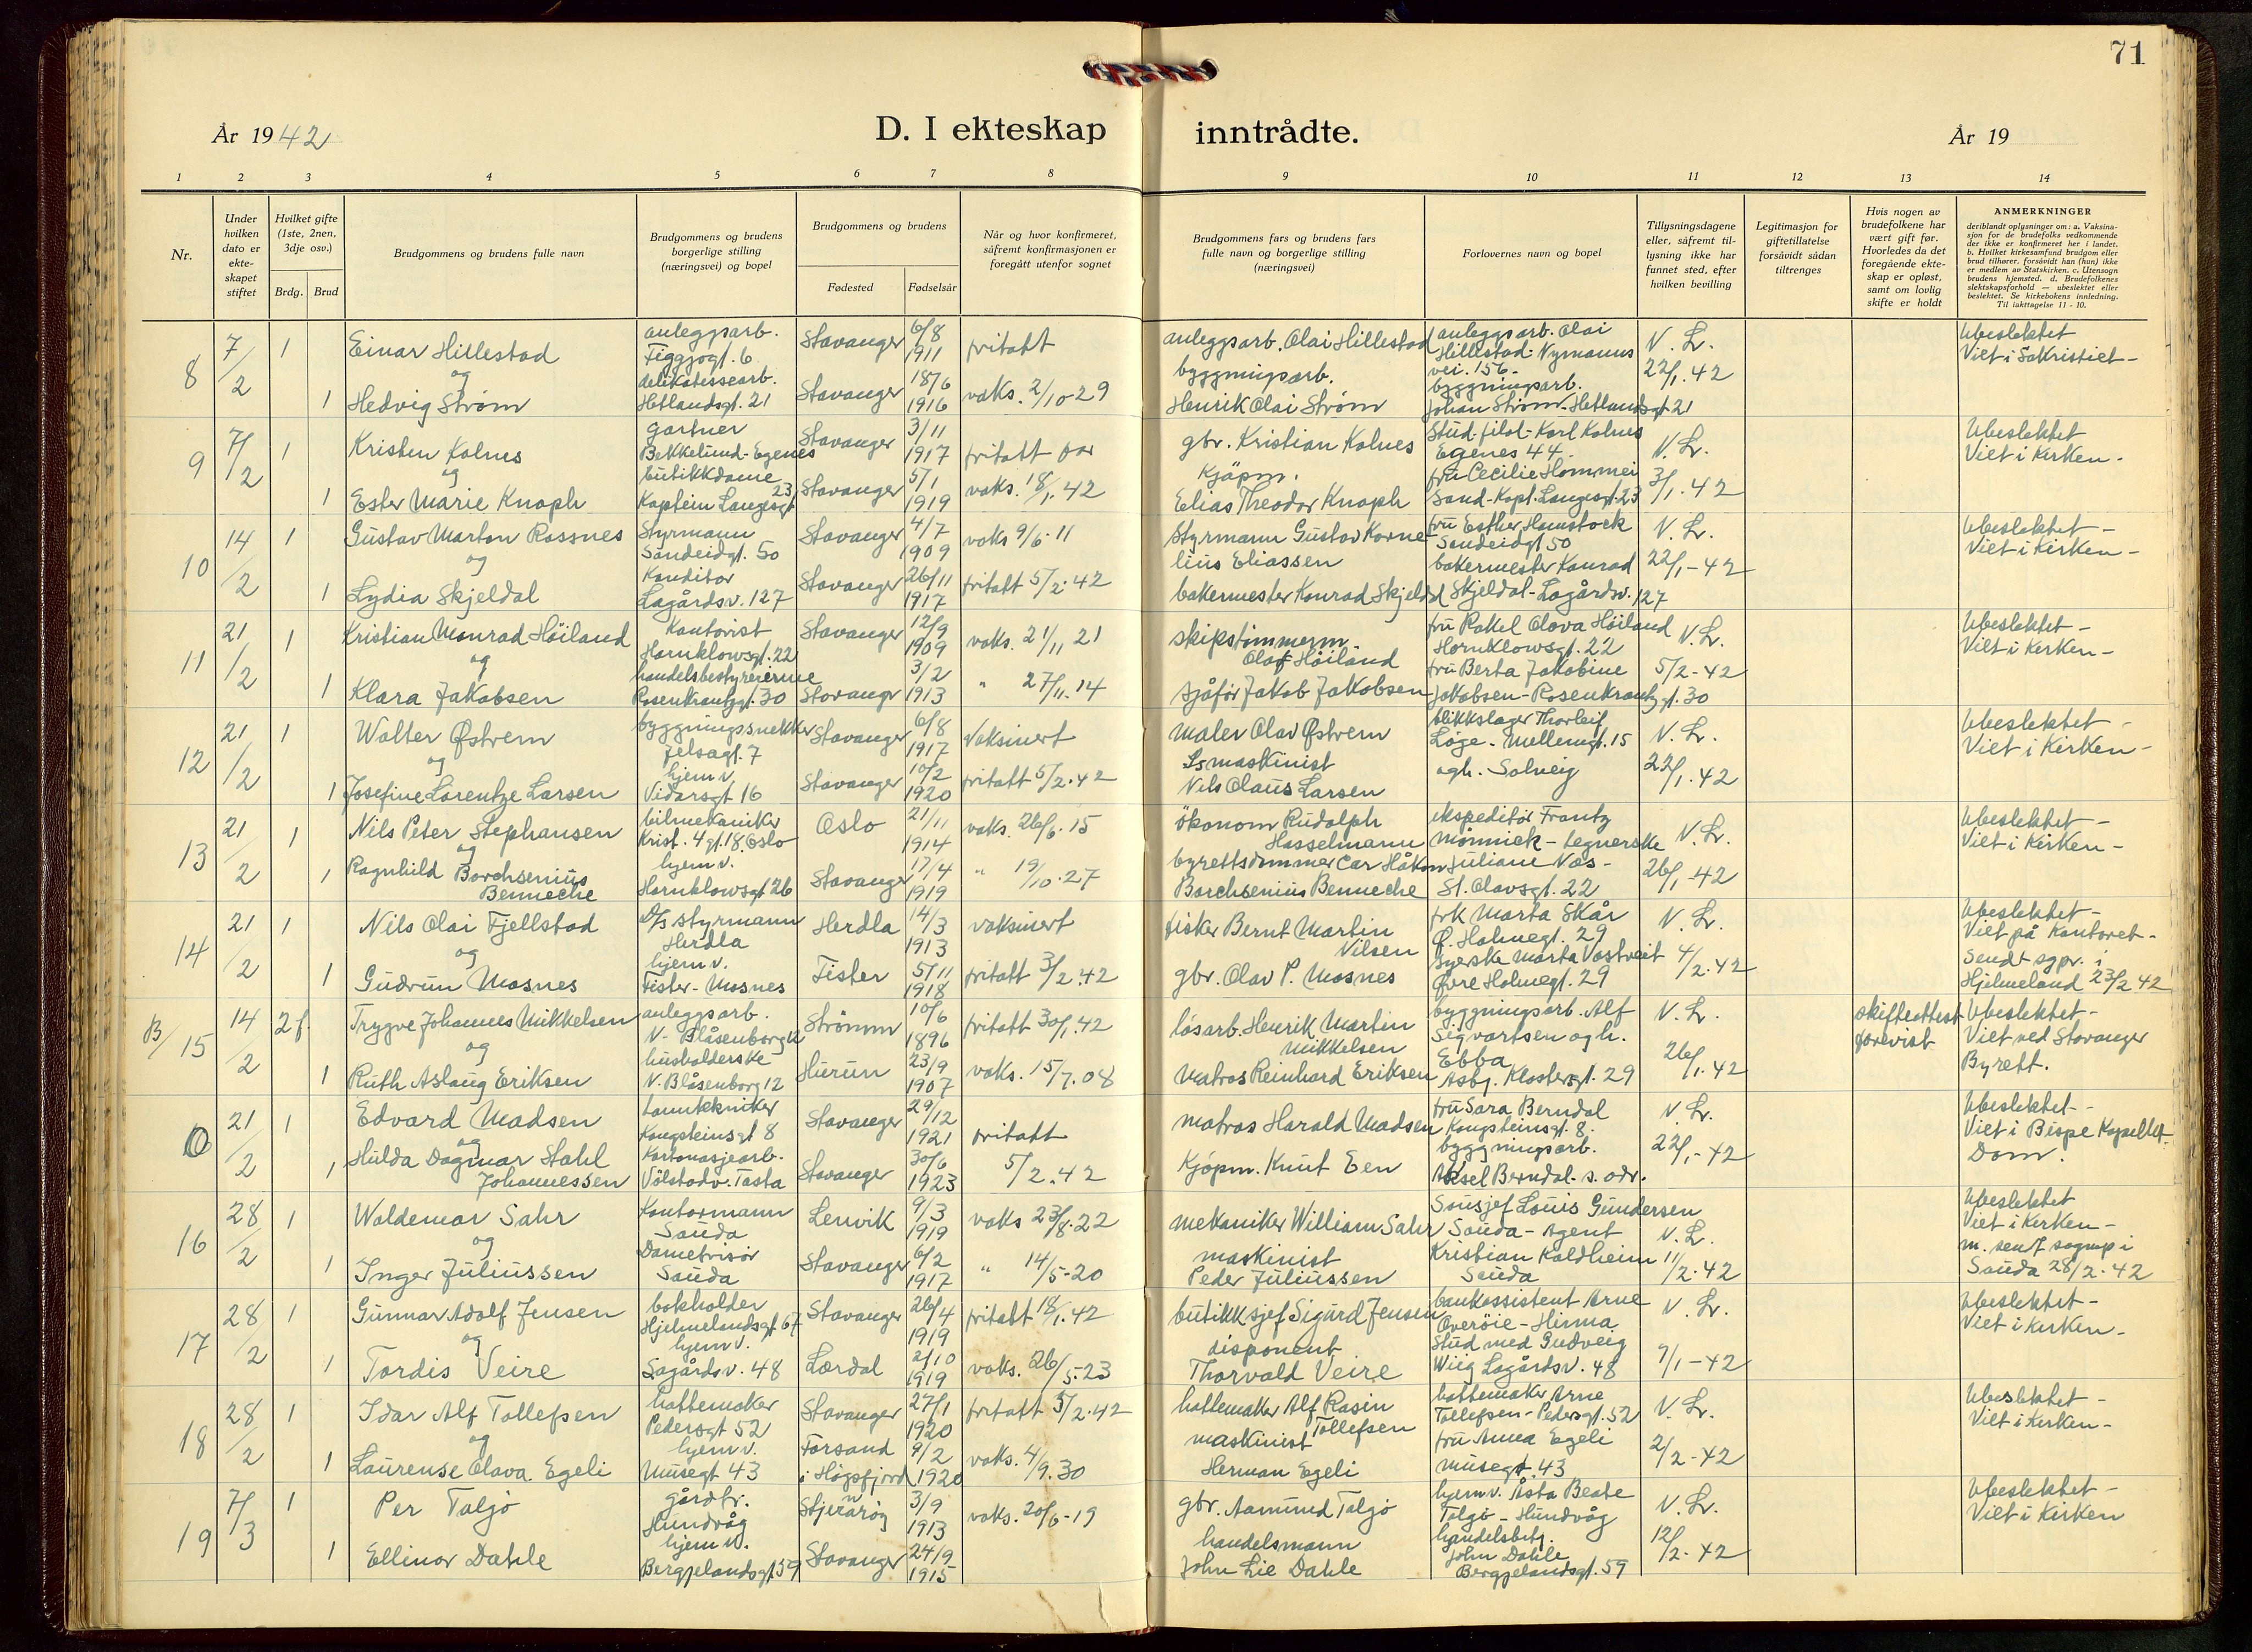 71
År 1942
D. I ekteskap
inntrådte.
År 19
1 2 3 4 5 6 7 8
9 10 11 12 13 14
Nr.
Under
hvilken
dato er
ekte-
skapet
stiftet
Hvilket gifte
(1ste, 2nen,
3dje osv.)
Brdg.
Brud
Brudgommens og brudens fulle navn
Brudgommens og brudens
borgerlige stilling
(næringsvei) og bopel
Brudgommens og brudens
Fødested
Fødselsår
Når og hvor konfirmeret,
såfremt konfirmasjonen er
foregått utenfor sognet
Brudgommens fars og brudens fars
fulle navn og borgerlige stilling
(næringsvei)
Forlovernes navn og bopel
Tillysningsdagene
eller, såfremt til-
lysning ikke har
funnet sted, efter
hvilken bevilling
Legitimasjon for
giftetillatelse
forsåvidt sådan
tiltrenges
Hvis nogen av
brudefolkene har
vært gift før.
Hvorledes da det
foregående ekte-
skap er opløst,
samt om lovlig
skifte er holdt
ANMERKNINGER
deriblandt oplysninger om: a. Vaksina-
sjon for de brudefolks vedkommende
der ikke er konfirmeret her i landet.
b. Hvilket kirkesamfund brudgom eller
brud tilhører, forsåvidt han (hun) ikke
er medlem av Statskirken. c. Utensogn
brudens hjemsted. d. Brudefolkenes
slektskapsforhold — ubeslektet eller
beslektet. Se kirkebokens innledning.
Til iakttagelse 11 - 10.
8
7/2
1
Einar Hillestad
og
1 Hedvig Strøm
anleggsarb.
Figgjogt. 6
delikatessearb.
Hetlandsgt. 21
Stavanger 6/8 1911
Stavanger 18/6 1916
fritatt
vaks. 2/10-29
anleggsarb. Olai Hillestad
byggningsarb.
Henrik Olai Strøm
anleggsarb. Olai
Hillestad- Nymanns
vei. 156-
byggningsarb.
Johan Strøm- Hetlandsgt 21
V. L.
22/1. 42
Ubeslektet
Viet i Sakristiet-
9
7/2
1
Kristen Kolnes
og
1 Ester Marie Knoph
gartner
Bekkelund- Egenes
butikkdame
Kaptein Langesgt 23
Stavanger 3/11 1917
Stavanger 5/1 1919
fritatt for
vaks. 18/1. 42
gbr. Kristian Kolnes
Kjøpm.
Elias Theodor Knoph
Stud. filol- Karl Kolnes
Egenes 44.
fru Cecilie Hommei
Sand- Kapt. Langesgt. 23
V. L.
3/1. 42
Ubeslektet
Viet i Kirken-
10
14/2
1
Gustav Marton Rossnes
og
1 Lydia Skjeldal
Styrmann
Sandeidgt. 50
Konditor
Lagårdsv. 127
Stavanger 4/7 1909
Stavanger 26/11 1917
vaks 9/6. 11
fritatt 5/2. 42
Styrmann Gustav Korne-
lius Eliassen
bakermester Konrad Skjeldal
fru Esther Homstock
Sandeidgt 50
bakermester Konrad
Skjeldal- Lagårdsv. 127
V. L.
22/1-42
Ubeslektet-
Viet i Kirken-
11
21/2
1
Kristian Monrad Høiland
og
1 Klara Jakobsen
Kontorist
Hornklowsgt. 22
handelsbestyrerinne
Rosenkrantzgt. 30
Stavanger 12/9 1909
Stavangr 3/2 1913
vaks. 21/11 21
" 27/11. 14
skipstømmerm.
Olaf Høiland
sjåfør Jakob Jakobsen
fru Rakel Olava Høiland
Hornklowsgt. 22
fru Berta Jakobine
Jakobsen- Rosenkrantzgt. 30
V. L.
5/2-42
Ubeslektet-
Viet i Kirken-
12
21/2
1
Walter Østrem
og
1 Josefine Lorentze Larsen
byggningssnekker
Jelsagt. 7
hjem v.
Vidarsgt 16
Stavanger 6/8 1917
Stavanger 10/2 1920
Vaksinert
fritatt 5/2. 42
Maler Olav Østrem
maskinist
Nils Olaus Larsen
blikkslager Thorleif
Løge- Møllengt. 15
og h. Solveig
V. L.
22/1. 42
Ubeslektet-
Viet i Kirken-
13
21/2
1
Nils Peter Stephansen
og
1 Ragnhild Borchsenius
Benneche
bilmekaniker
Krist. 4 gt. 18. Oslo
hjem v.
Hornklowsgt 26
Oslo 21/11 1914
Stavanger 17/4 1919
vaks. 26/6. 15
" 19/10. 27
økonom Rudolph
Hasselmann
byrettsdommer Car Håkon
Borchsenius Benneche
ekspeditør Frantz
Mønnick- tegnerske
Juliane Næs-
St. Olavsgt. 22
V. L.
26/1-42
Ubeslektet-
Viet i Kirken-
14
21/2
1
Nils Olai Fjellstad
og
1 Gudrun Mosnes
D/s styrmann
Herdla
hjem v.
Fister- Mosnes
Herdla 14/3 1913
Fister 5/11 1918
vaksinert
fritatt 3/2. 42
fisker Bernt Martin
Nilsen
gbr. Olav P. Mosnes
frk Marta Skår
Ø. Holmegt. 29
syerske Marta Vostveit
Øvre Holmegt. 29
V. L.
4/2. 42
Ubeslektet-
Viet på Kontoret-
Sendt sgpr. i
Hjelmeland 23/2 42
B/15
14/2
2 f.
Trygve Johannes Mikkelsen
og
1 Ruth Aslaug Eriksen
anleggsarb.
N- Blåsenborg 12
husholderske
N. Blåsenborg 12
Strømm 10/6 1896
Hurum 23/9 1907
fritatt 30/1. 42
vaks. 15/7. 08
løsarb. Henrik Martin
Mikkelsen
Matros Reinhard Eriksen
byggningsarb. Alf
Sigvartsen og h.
Ebba
Asbj. Klostersgt. 29
V. L.
26/1. 42
skifteattest
forevist
Ubeslektet-
Viet ved Stavanger
Byrett.
0
21/2
1
Edvard Madsen
og
1 Hulda Dagmar Stahl
Johannessen
tanntekniker
Kongsteinsgt 8
Kartonasjearb.
Vålstadv. Tasta
Stavanger 29/12 1921
Stavanger 30/6 1923
fritatt
5/2. 42
matros Harald Madsen
Kjøpm. Knut Een
fru Sara Berndal
Kongsteinsgt. 8.
byggningsarb.
Aksel Berndal- s. adr.
V. L.
22/1-42
Ubeslektet-
Viet i Bispe Kapellet-
Dom.
16
28/2
1
Waldemar Sahr
og
1 Inger Juliussen
Kontormann
Sauda
Damefrisør
Sauda
Lenvik 9/3 1919
Stavanger 6/2 1917
vaks 23/8. 22
" 14/5-20
mekaniker William Sahr
maskinist
Peder Juliussen
Sousjef Louis Gundersen
Sauda- Agent
Kristian Kaldheim
Sauda
V. L.
11/2. 42
Ubeslektet
Viet i Kirken-
m. sendt sognep i
Sauda 28/2. 42
17
28/2
1
Gunnar Adolf Jensen
og
1 Tordis Veire
bokholder
Hjelmelandsgt 67
hjem v.
Lagårdsv. 48
Stavanger 26/4 1919
Lærdal 2/10 1919
fritatt 18/1. 42
vaks. 26/5-23
butikksjef Sigurd Jensen
disponent
Thorvald Veire
bankassistent Arne
Overøie- Hinna
Stud med Gudveig
Wiig Lagårdsv. 48
V. L.
9/1-42
Ubeslektet-
Viet i Kirken-
18
28/2
1
Idar Alf Tollefsen
og
1 Laurense Olava Egeli
hattemaker
Pedersgt 52
hjem v.
Musegt 43
Stavanger 27/1 1920
Forsand
i Høgsfjord 9/2 1920
fritatt 3/2. 42
vaks. 4/9. 30
hattemaker Alf Rasin
Tollefsen
maskinist
Herman Egeli
hattemaker Arne
Tollefsen- Pedersgt. 52
fru Anna Egeli
musegt. 43
V. L.
2/2-42
Ubeslektet-
Viet i Kirken-
19
7/3
1
Per Talgø
1 Ellinor Dahle
gårdbr.
Hundvåg
hjem v.
Bergjelandsgt 59
Stjernarøy 3/9 1913
Stavanger 24/9 1915
vaks. 20/6-19
gbr. Aamund Talgø
handelsmann
John Lie Dahle
hjem v. Åsta Beate
Talgø- Hundvåg
handelsbetj.
John Dahle
Bergjelandsgt. 59
V. L.
12/2. 42
Ubeslektet-
Viet i Kirken